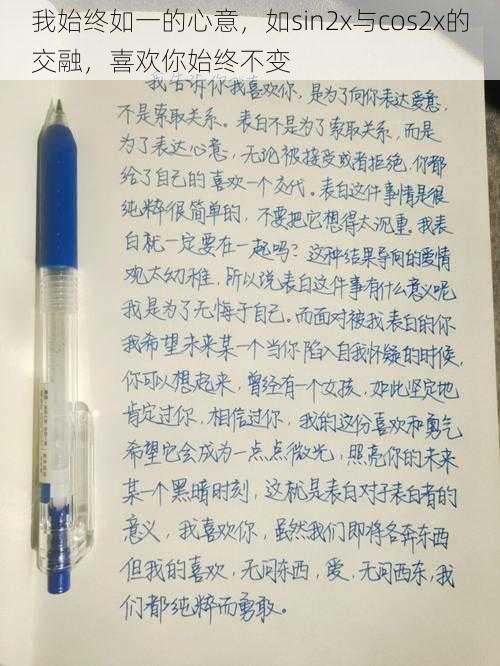 我始终如一的心意，如sin2x与cos2x的
交融，喜欢你始终不变
我告诉你我喜欢你，是为了向你表达爱意，
不是索取关系。表白不是为了索取关系，而是
为了表达心意，无论被接受或者拒绝，你都
给了自己的喜欢一个交代。表白这件事情是很
纯粹很简单的，不要把它想得太沉重。我表
白就一定要在一起吗？这种结果导向的爱情
观太幼稚，所以说表白这件事有什么意义呢
我是为了无悔于自己。而面对被我表白的你
我希望未来某一个当你陷入自我怀疑的时候，
你可以想起来，曾经有一个女孩，如此坚定地
肯定过你，相信过你，我的这份喜欢和勇气
希望它会成为一点点微光，照亮你的未来
某一个黑暗时刻，这就是表白对于表白者的
意义，我喜欢你，虽然我们即将各奔东西
但我的喜欢，无问东西，爱，无问西东，我
们都纯粹而勇敢。